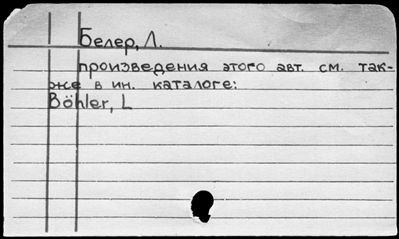 Белер, Л.
произведения этого авт. см. так-
же в ин. каталоге:
Böhler, L